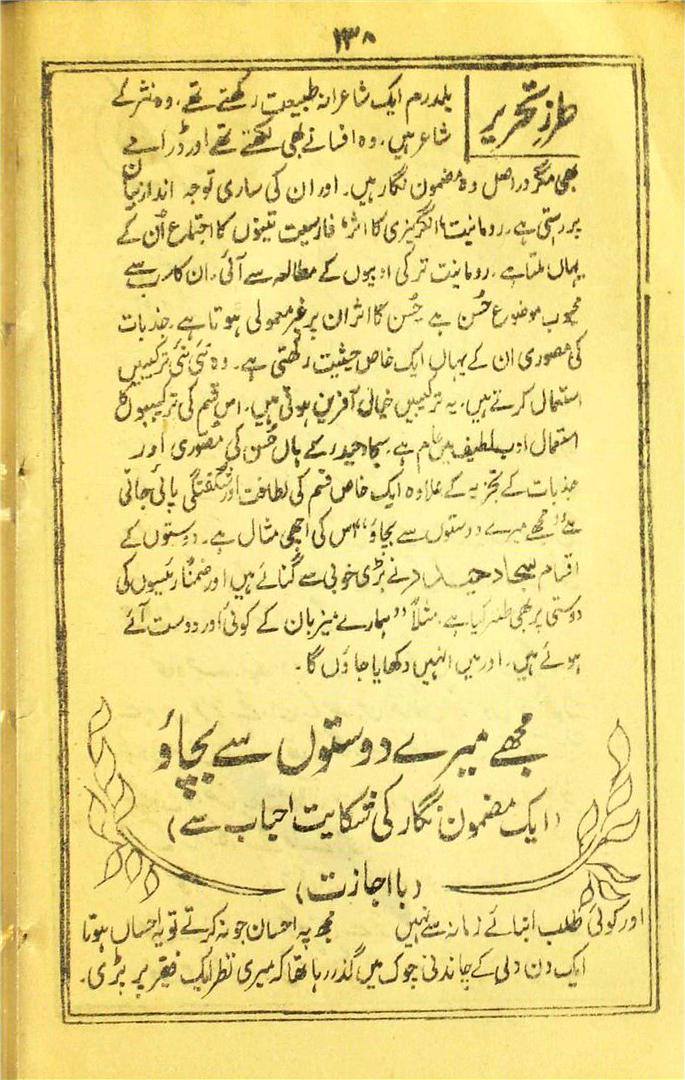 ۱۳۸
طرزِ تحریر
یلدرم ایک شاعرانہ طبیعت رکھتے تھے۔ وہ نثر کے
شاعر ہیں۔ وہ افسانے بھی لکھتے تھے اور ڈرامے
بھی مگر دراصل وہ مضمون نگار ہیں۔ اور ان کی ساری توجہ انداز بیان
پر رہتی ہے۔ رومانیت، انگریزی کا اثر، فارسیت تینوں کا اجتماع اُن کے
یہاں ملتا ہے۔ رومانیت ترکی ادیبوں کے مطالعہ سے آئی۔ ان کا سب سے
محبوب موضوع حُسن ہے حُسن کا اثر ان پر غیر معمولی ہوتا ہے۔ جذبات
کی مصوری ان کے یہاں ایک خاص حیثیت رکھتی ہے۔ وہ نئی نئی ترکیبیں
استعمال کرتے ہیں۔ یہ ترکیبیں خیال آفرین ہوتی ہیں۔ اس قسم کی ترکیبوں کا
استعمال ادب لطیف میں عام ہے۔ سجاد حیدر کے ہاں حُسن کی مصوری اور
جذبات کے تجزیہ کے علاوہ ایک خاص قسم کی لطافت اور شگفتگی پائی جاتی
ہے "مجھے میرے دوستوں سے بچاؤ" اس کی اچھی مثال ہے۔ دوستوں کے
اقسام سجاد حیدر نے بڑی خوبی سے گنائے ہیں اور ضمناً رئیسوں کی
دوستی پر بھی طنز کیا ہے۔ مثلاً "ہمارے میزبان کے کوئی اور دوست آئے
ہوئے ہیں۔ اور میں انہیں دکھایا جاؤں گا۔
مجھے میرے دوستوں سے بچاؤ
(ایک مضمون نگار کی شکایت احباب سے)
(با اجازت)
اور کوئی طلب ابنائے زمانہ سے نہیں مجھ پہ احسان جو نہ کرتے تو یہ احساں ہوتا
ایک دن دلی کے چاندنی چوک میں گذر رہا تھا کہ میری نظر ایک فقیر پر پڑی۔